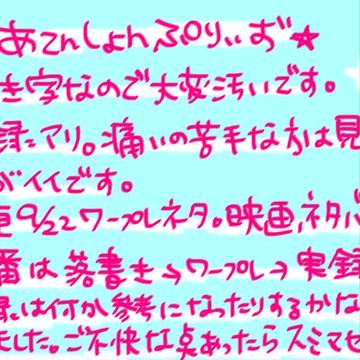 あてんしょんぷりぃず★
き字なので大変汚いです。
録ニアリ。痛いの苦手な方は見
がイイです。
9/22ワープレネタ。映画ネタバ
番は落書き→ワープレ→実録
は何か参考になったりするかな
した。ご不快な点あったらスミマセ